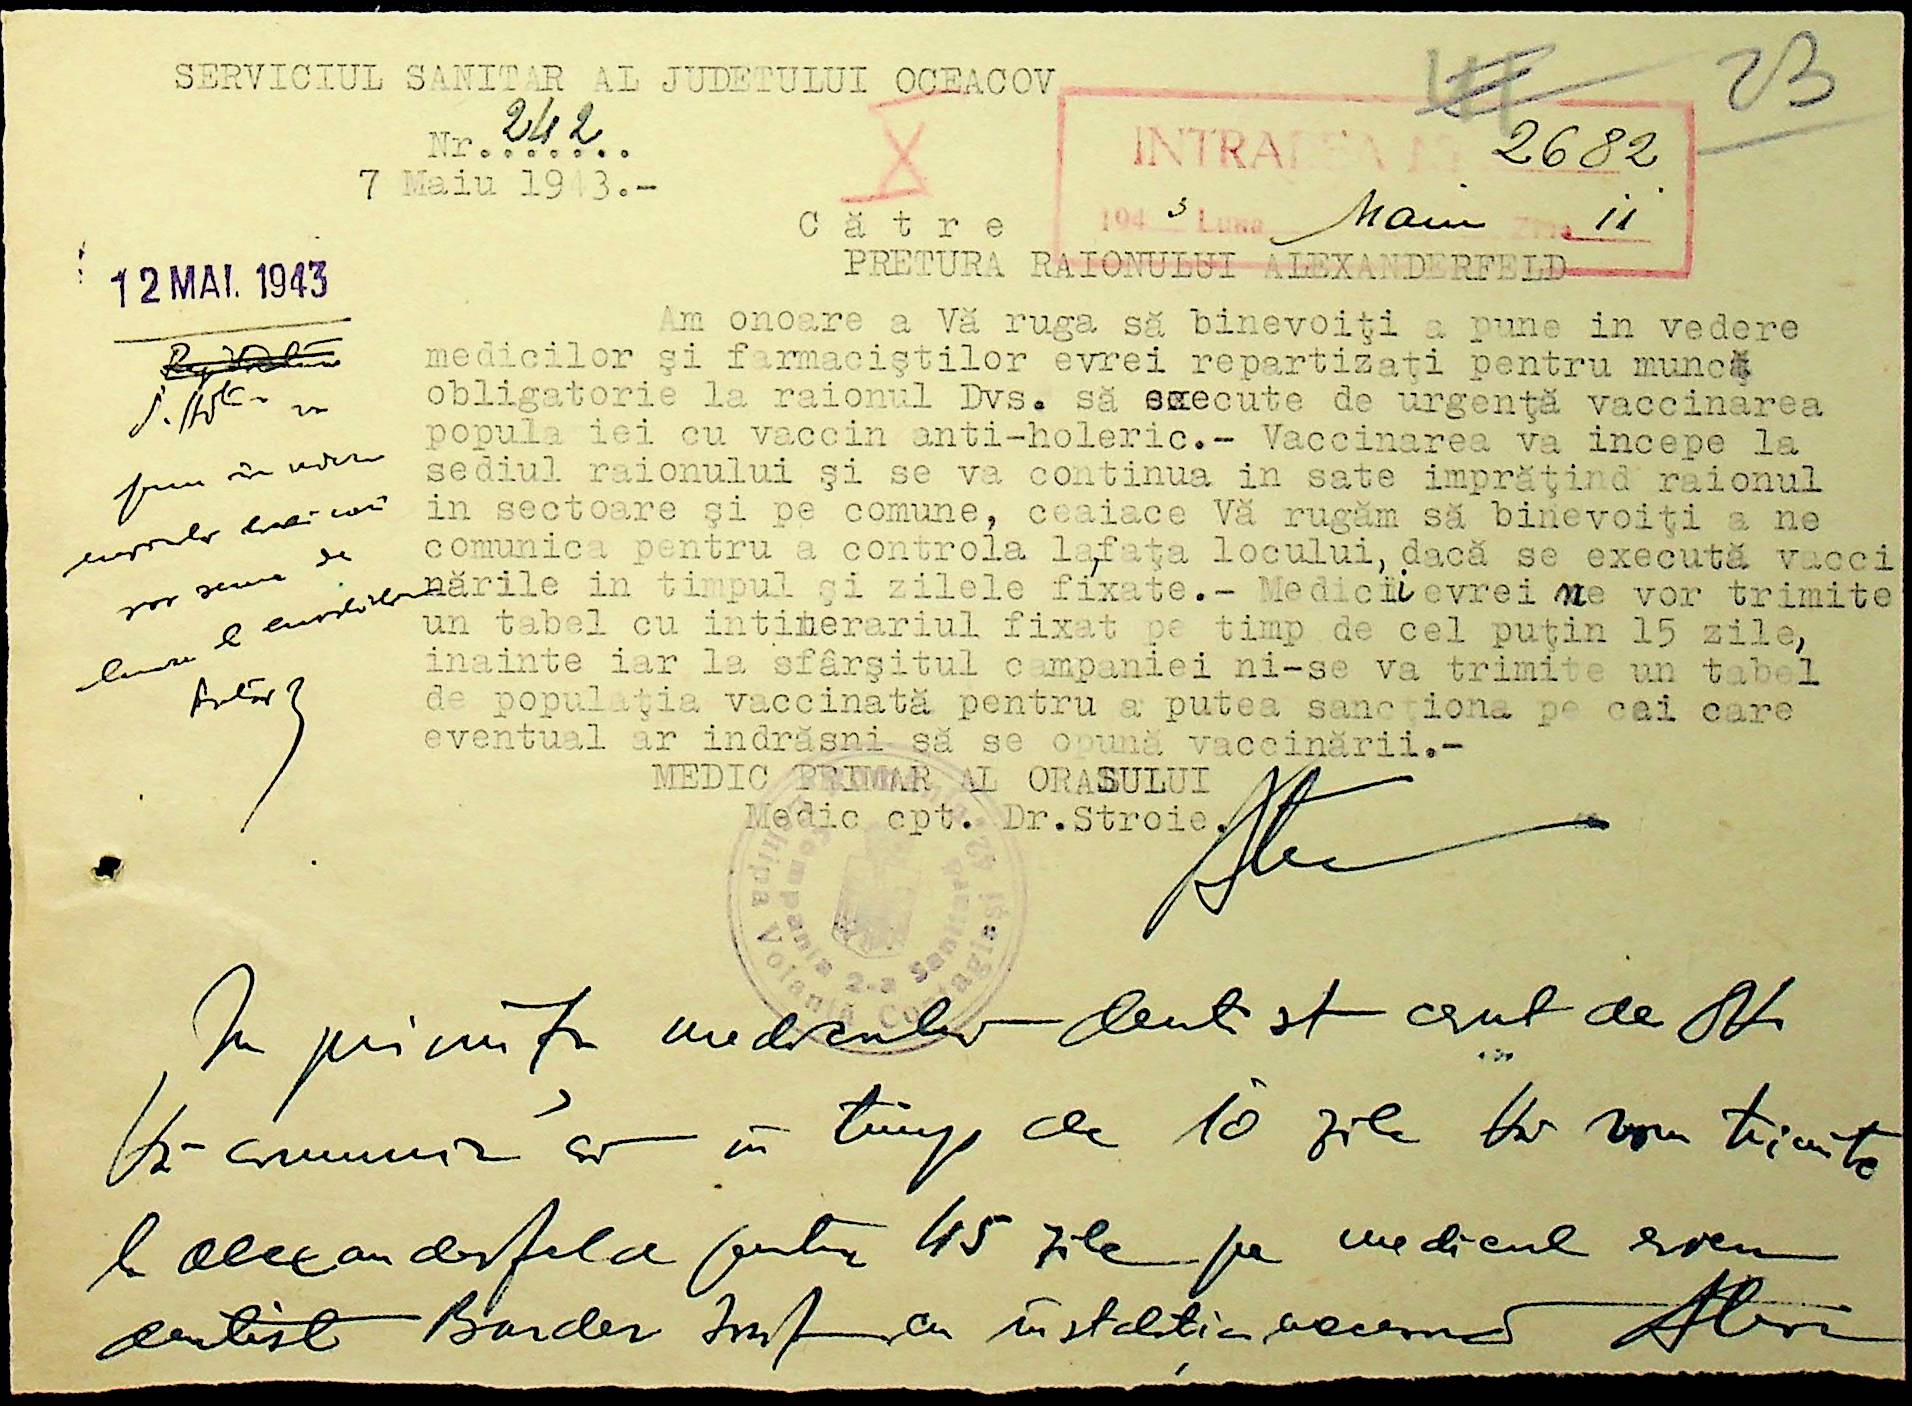 SERVICIUL SANITAR AL JUDETULUI OCEACOV
Nr. 242
7 Maiu 1943.-
23
INTRAREA № 2682
1943 Luna Maiu Ziua 11
Către
PRETURA RAIONULUI ALEXANDERFELD
12 MAI. 1943
Am onoare a Vă ruga să binevoiţi a pune in vedere
medicilor şi farmaciştilor evrei repartizaţi pentru muncă
obligatorie la raionul Dvs. să execute de urgenţă vaccinarea
popula iei cu vaccin anti-holeric.- Vaccinarea va incepe la
sediul raionului şi se va continua in sate imprăţind raionul
in sectoare şi pe comune, ceaiace Vă rugăm să binevoiţi a ne
comunica pentru a controla la,faţa locului, dacă se execută vacci
nările in timpul şi zilele fixate.- Medicii evrei ne vor trimite
un tabel cu intinerariul fixat pe timp de cel puţin 15 zile,
inainte iar la sfârşitul campaniei ni-se va trimite un tabel
de populaţia vaccinată pentru a putea sancţiona pe cei care
eventual ar indrăsni să se opună vaccinării.-
MEDIC PRIMAR AL ORASULUI
Medic cpt. Dr.Stroie.
Echipa Volantă Contagioşi
Compania 2-a Sanitară
pun in vedere
vor
seama de
In privinţa medicului dentist cerut de Dv.
Vă comunic că in timp de 10 zile Vă vom trimite
la Alexanderfeld pentru 45 zile pe medicul evreu
dentist cu instalaţia necesară